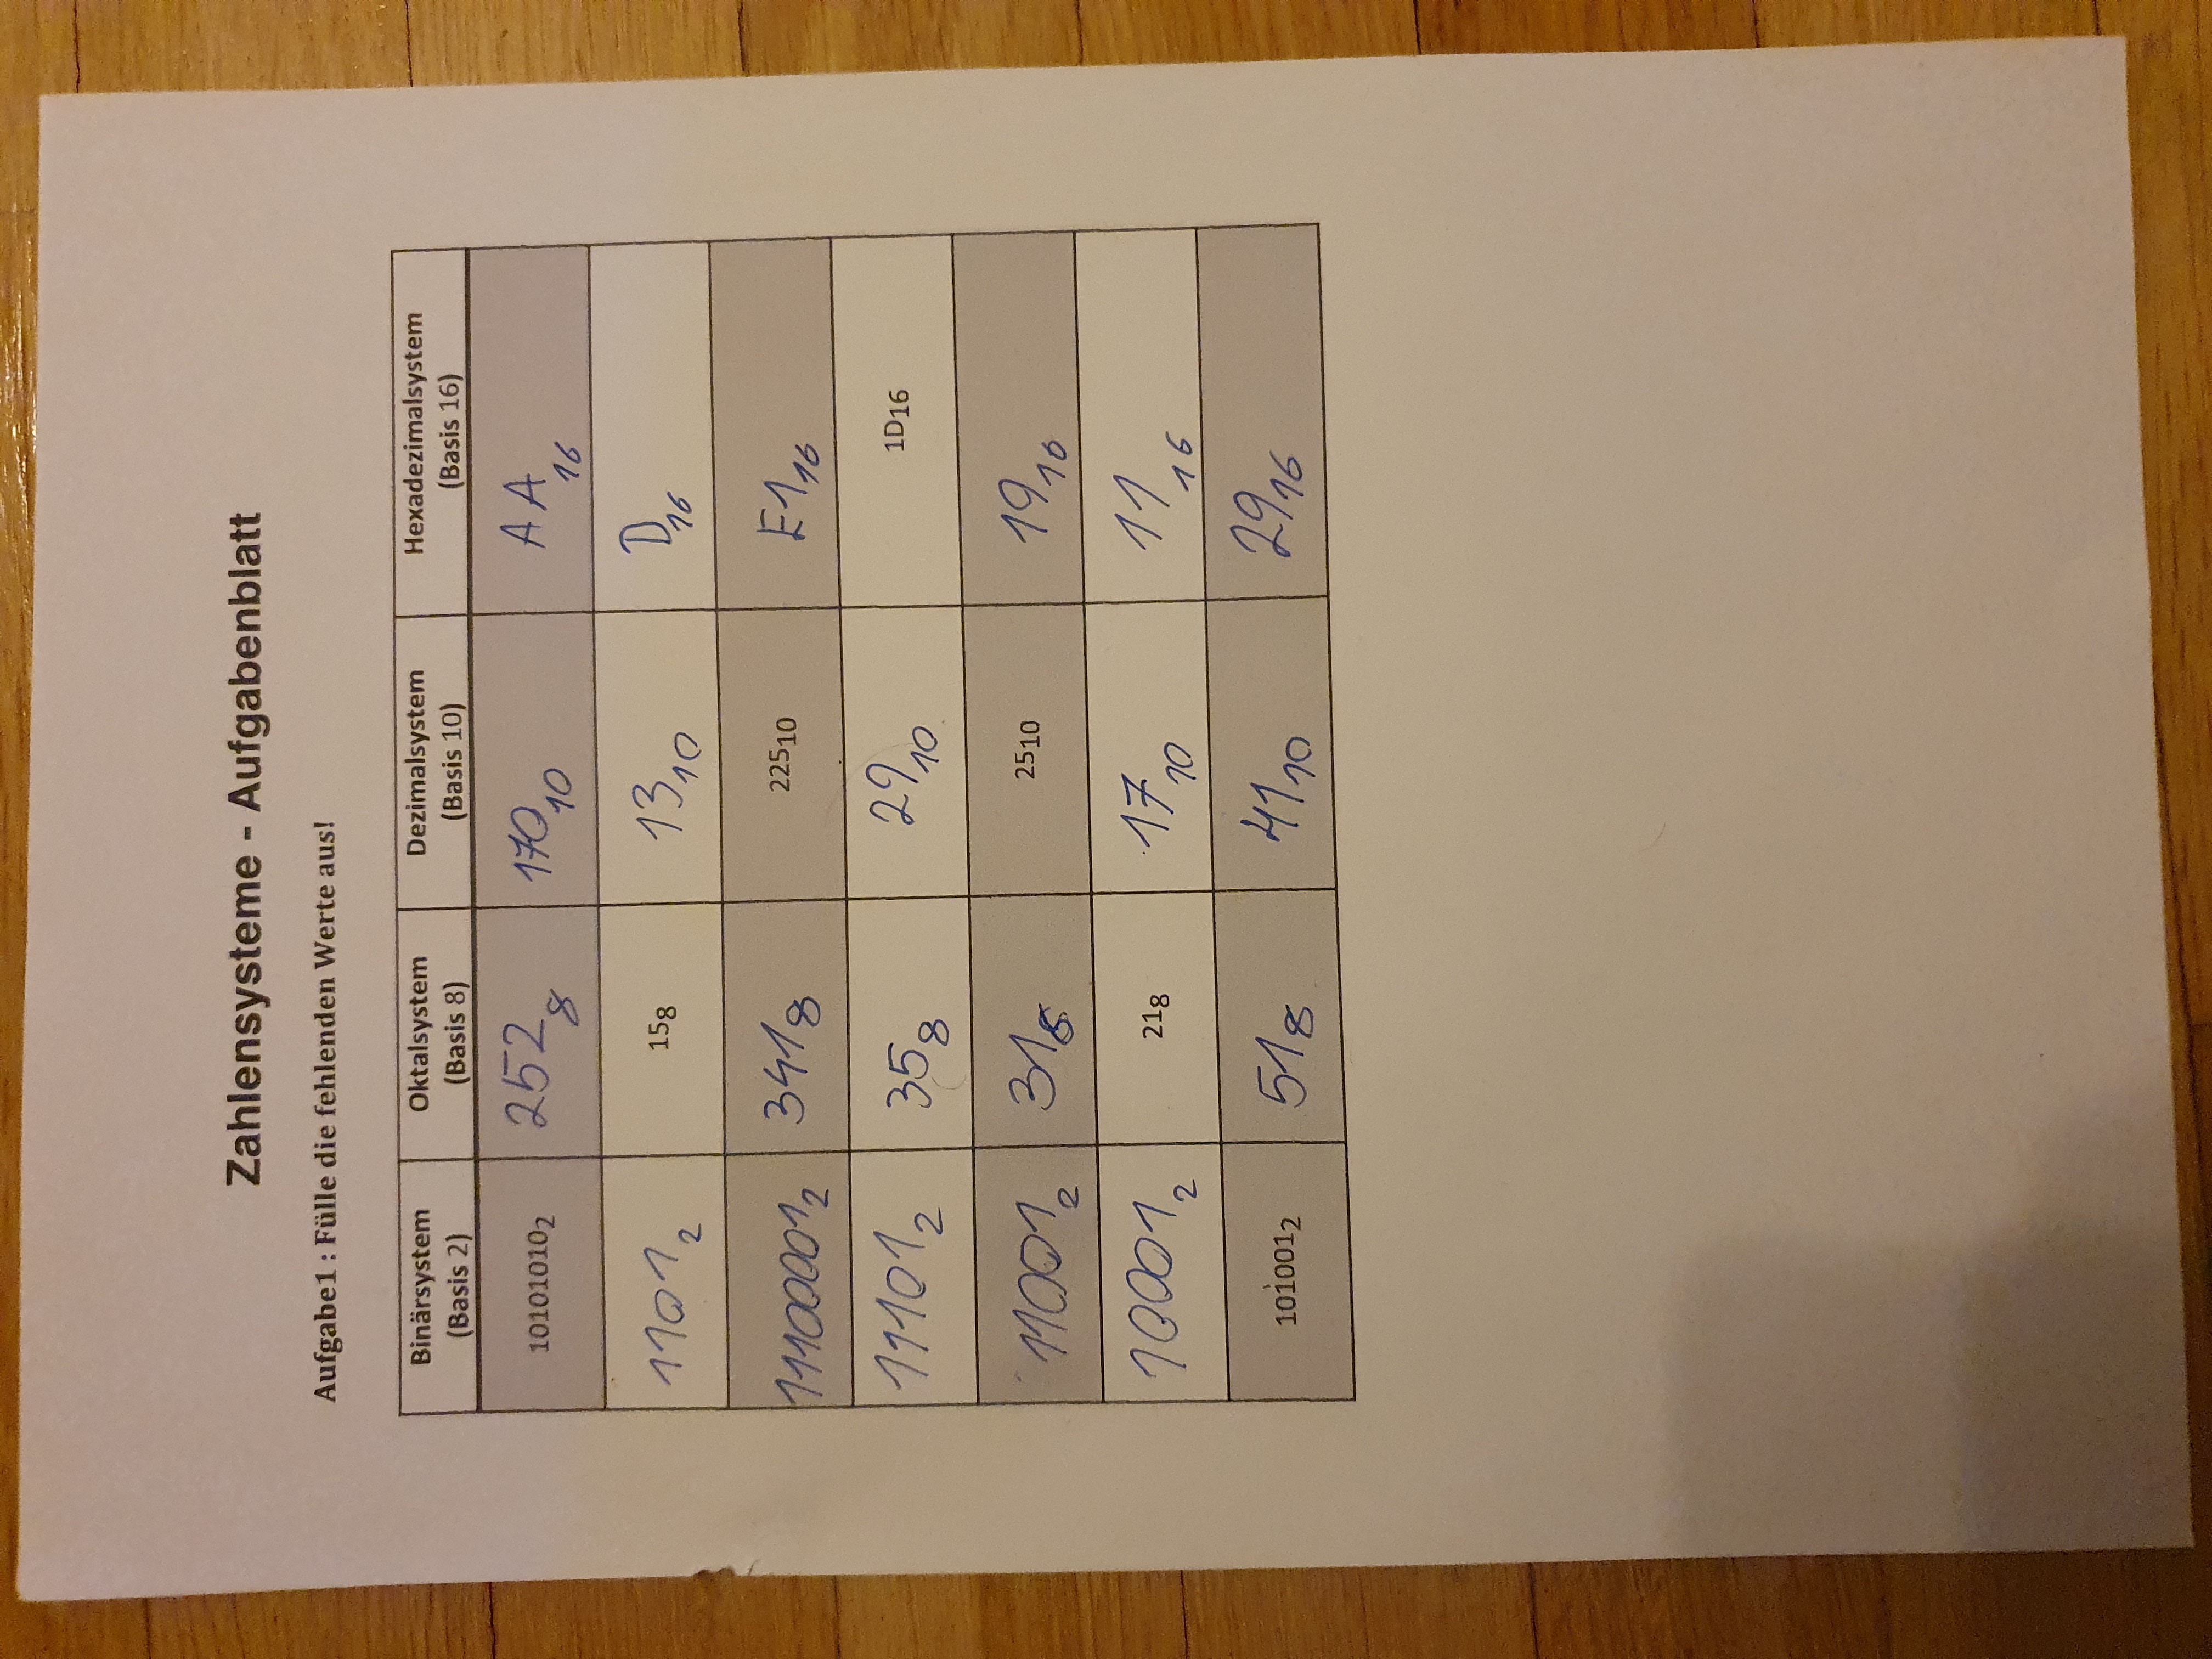 Zahlensysteme - Aufgabenblatt
Aufgabe1 : Fülle die fehlenden Werte aus!
Binärsystem (Basis 2) Oktalsystem (Basis 8) Dezimalsystem (Basis 10) Hexadezimalsystem (Basis 16)
10101010₂ 252₈ 170₁₀ AA₁₆
1101₂ 15₈ 13₁₀ D₁₆
11100001₂ 341₈ 225₁₀ E1₁₆
11101₂ 35₈ 29₁₀ 1D₁₆
11001₂ 31₈ 25₁₀ 19₁₆
10001₂ 21₈ 17₁₀ 11₁₆
101001₂ 51₈ 41₁₀ 29₁₆